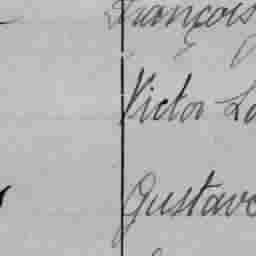 François
Victor Lo
Gustave